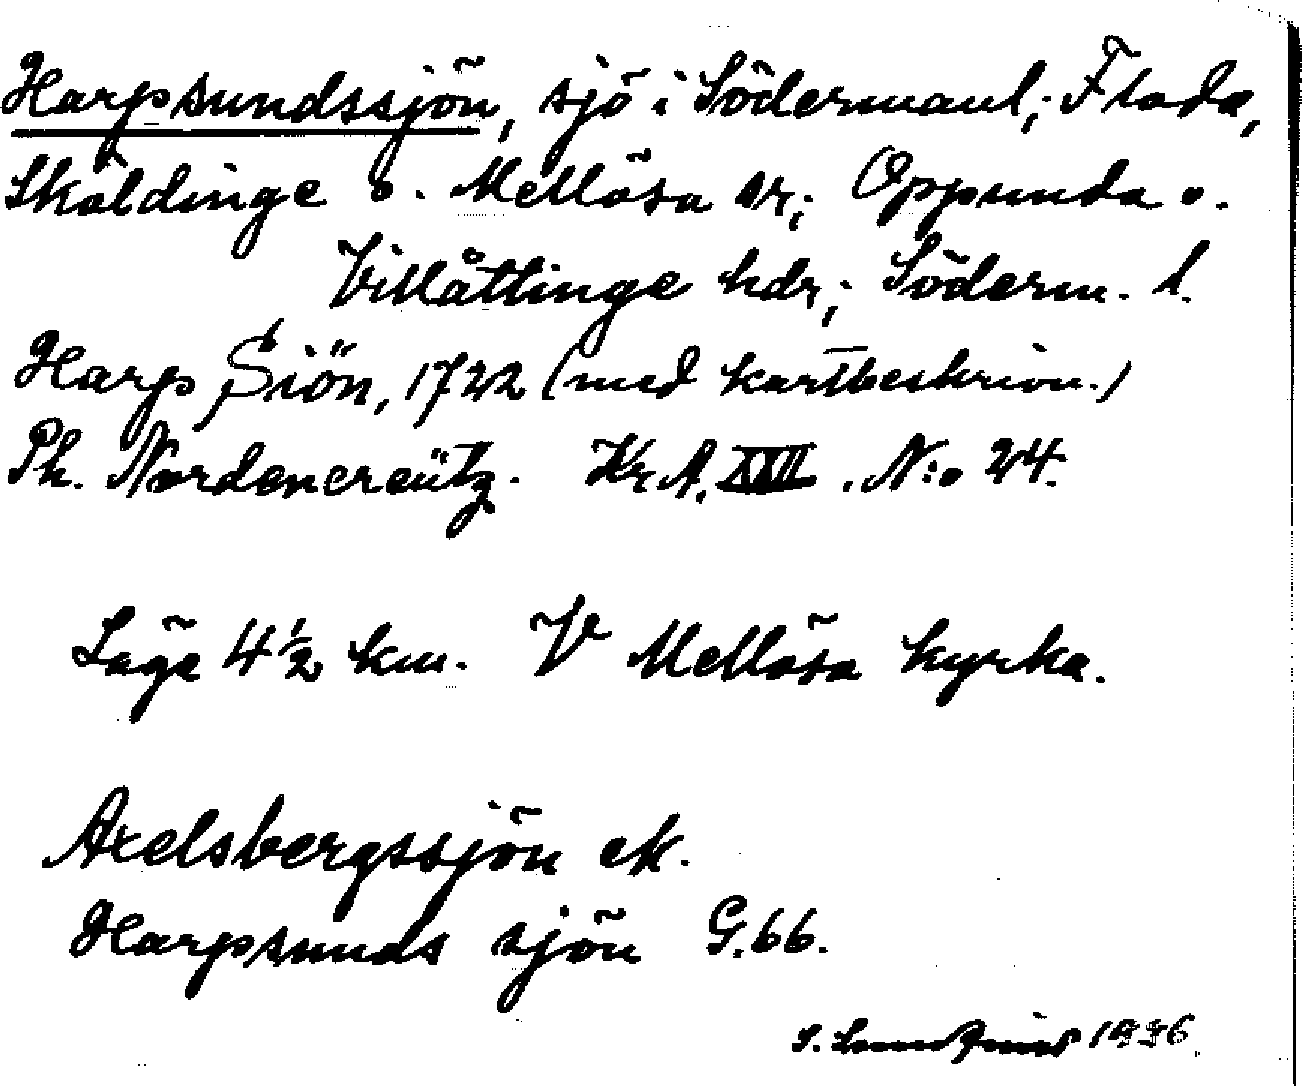 Harpsundssjön, sjö i Södermanl; Floda,
Sköldinge o. Mellösa sr; Oppunda o.
Villåttinge hdr; Söderm. l.
Harp Siön, 1722 (med kartbeskrivn.)
Ph. Nordencreütz. Kr. A. XVII. N:o 24.
Läge 4½ km. V Mellösa kyrka.
Axelsbergssjön ek.
Harpsunds sjön G. 66.
1936